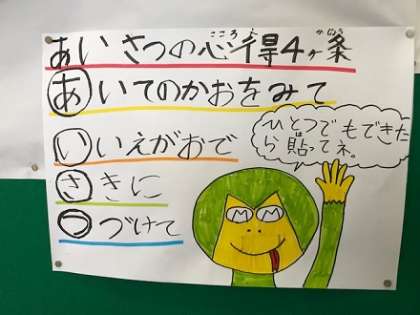 あいさつの心得4ヶ条
こころえ
かじょう
あいてのかおをみて
いいえがおで
さきに
つづけて
ひとつでもできた
ら貼ってネ。